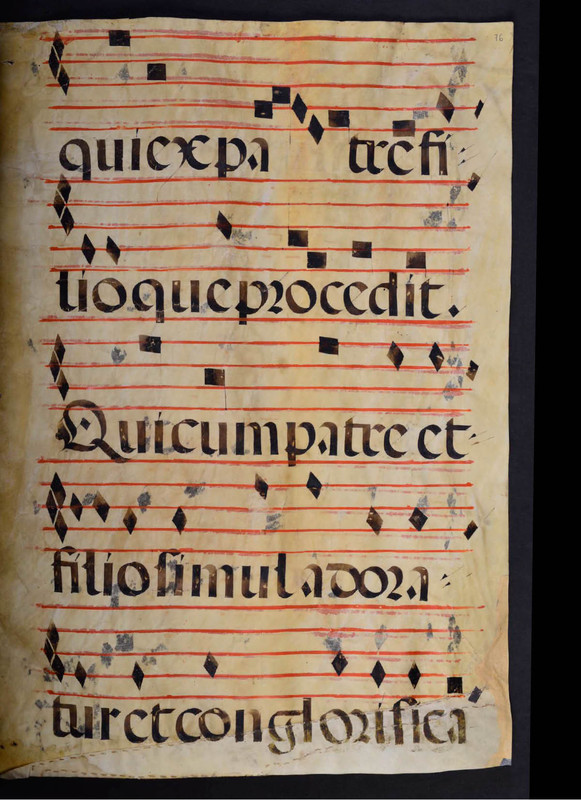 76
qui ex pa tre fi
lio que procedit.
Qui cum patre et
filio simul adora
tur et conglorifica